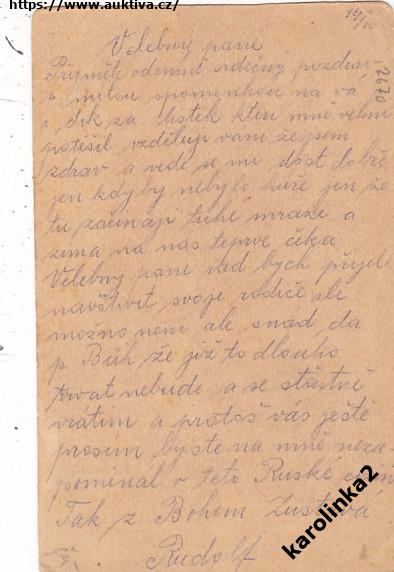 https://www.auktiva.cz/
Velebny pane
Prijměte odemně srdečny pozdrav
milou spomenkou na vá
dík za listek kteri mně velmi
potěšil vzděluji vam že jsem
zdrav a vede se mi dost dobře
jen kdyby nebylo huře jen že
tu začinaji tuhé mraze a
zima na nas teprve čeka
Velebny pane rad bych přijel
navštivit svoje rodiče ale
možno neni ale snad da
p. Bůh že již to dlouho
trvat nebude a se stastně
vratim a protož vás ještě
prosim, byste na mně neza-
pomenál v teto Ruske
Tak z Bohem Zustává
Rudolf
2670
karolinka2